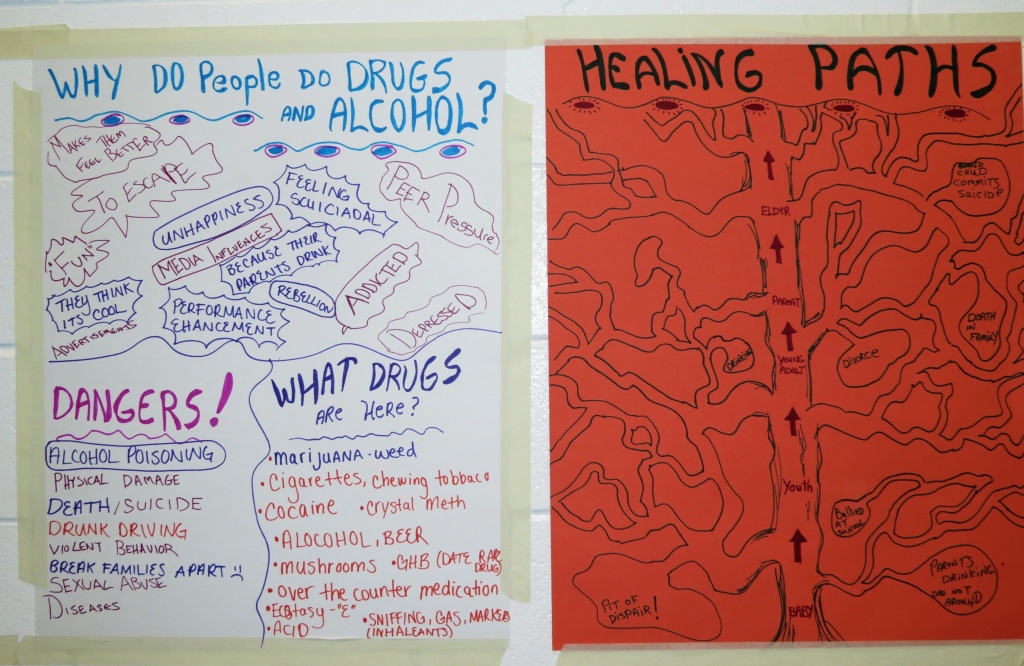 WHY DO People DO DRUGS
AND ALCOHOL?
MAKES THEM
FEEL BETTER
TO ESCAPE
UNHAPPINESS
FEELING
SCUICIADAL
PEER PRESSURE
"FUN"
MEDIA INFLUENCES
BECAUSE THEIR
PARENTS DRINK
ADDICTED
THEY THINK
ITS COOL
PERFORMANCE
EHANCEMENT
REBELLION
DEPRESSED
ADVERTISEMENTS
DANGERS!
ALCOHOL POISONING
PHYSICAL DAMAGE
DEATH/SUICIDE
DRUNK DRIVING
VIOLENT BEHAVIOR
BREAK FAMILIES APART
SEXUAL ABUSE
DISEASES
WHAT DRUGS
ARE HERE?
•MARIJUANA-WEED
•Cigarettes, chewing tobbaco
•COCAINE •crystal Meth
•ALOCOHOL, BEER
•mushrooms •GHB (DATE RAPE
DRUG)
•over the counter medication
•Ecstasy-"E" •SNIFFING, GAS, MARKERS
•ACID (INHALEANTS)
HEALING PATHS
CHILD
COMMITS
SUICIDE
ELDER
PARENT
DEATH
IN
FAMILY
DRINKING
YOUNG
ADULT
DIVORCE
Youth
BULLIED
AT
SCHOOL
PARENTS
DRINKING
DAD NOT
AROUND
PIT OF
DISPAIR!
BABY